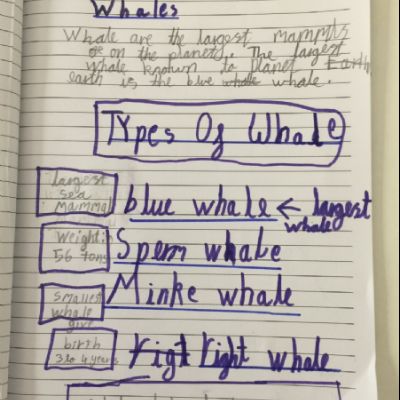 Whales
Whale are the largest mammls
on the planets. The largest
whale known to planet Earth
earth is the blue whale whale.
Types Of Whale
largest
sea
mammal
blue whale ← largest
whale
Weight:
56 tons
Sperm whale
Smallest
whale
give
Minke whale
birth
3 to 4 years
rigt right whale